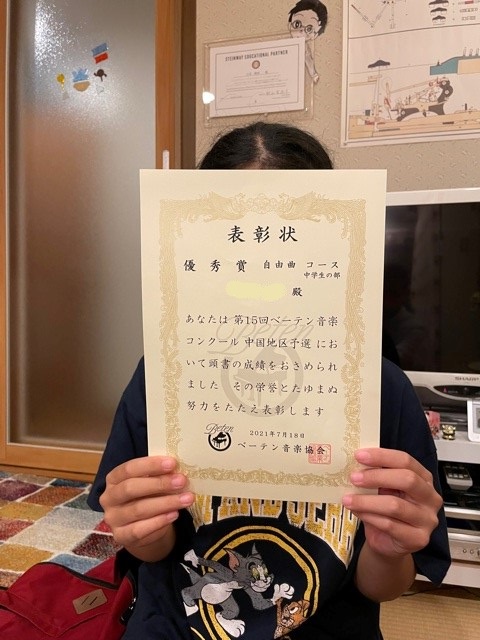 STEINWAY EDUCATIONAL PARTNER
表彰状
優秀賞 自由曲 コース
中学生の部
殿
あなたは 第15回ベーテン音楽
コンクール 中国地区予選 にお
いて頭書の成績をおさめられ
ました その栄誉とたゆまぬ
努力をたたえ表彰します
Beten
2021年7月18日
ベーテン音楽協会
SHARP
TOM AND JERRY